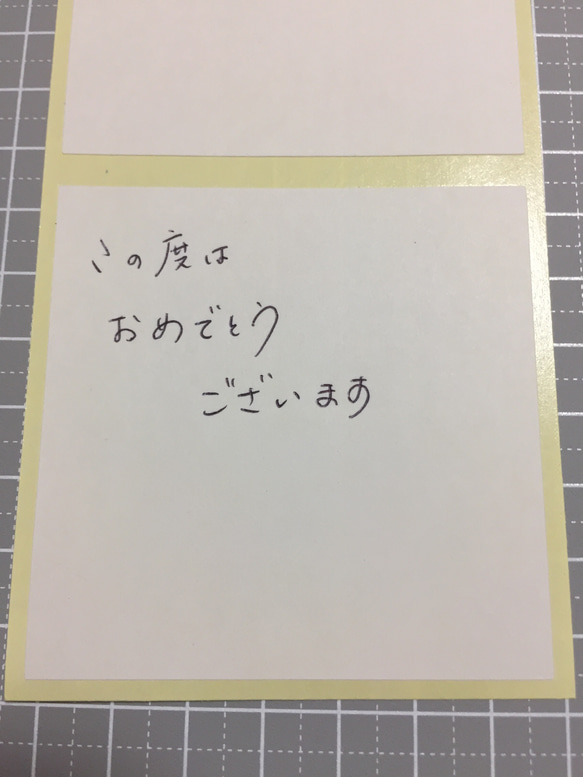 この度は
おめでとう
ございます